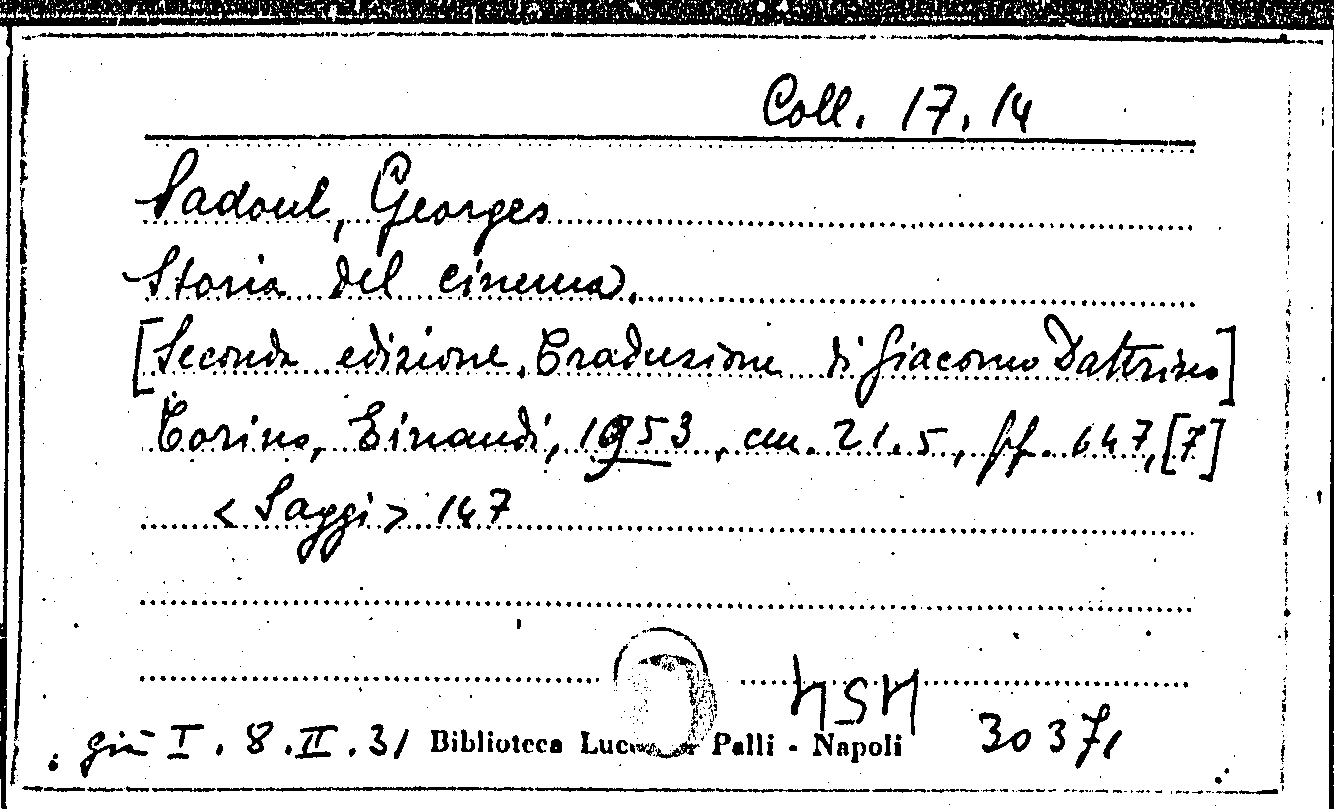 Coll. 17.14
Sadoul, Georges
Storia del cinema.
[Seconda edizione. Traduzione di Giacomo Dattrino]
Torino, Einaudi, 1953, cm. 21.5, pp. 647,[7]
<Saggi> 147
già I.8.II.31 Biblioteca Palli - Napoli